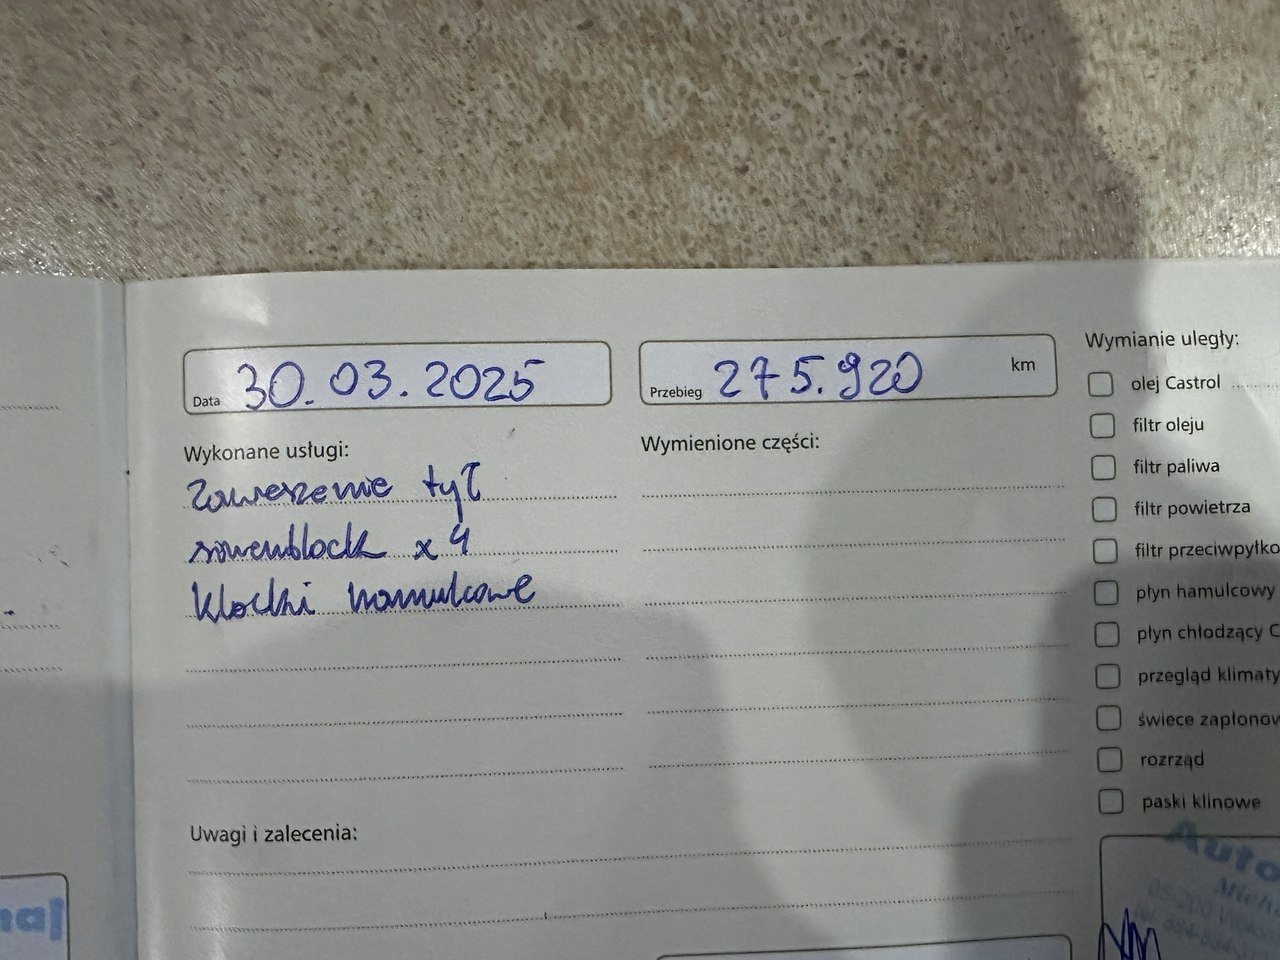 Data 30.03.2025
Przebieg 275.920 km
Wykonane usługi:
Zawieszenie tył
x 4
klocki hamulcowe
Wymienione części:
Uwagi i zalecenia:
Wymianie uległy:
olej Castrol
filtr oleju
filtr paliwa
filtr powietrza
filtr przeciwpyłko
płyn hamulcowy
płyn chłodzący C
przegląd klimaty
świece zapłonow
rozrząd
paski klinowe
Auto
naj